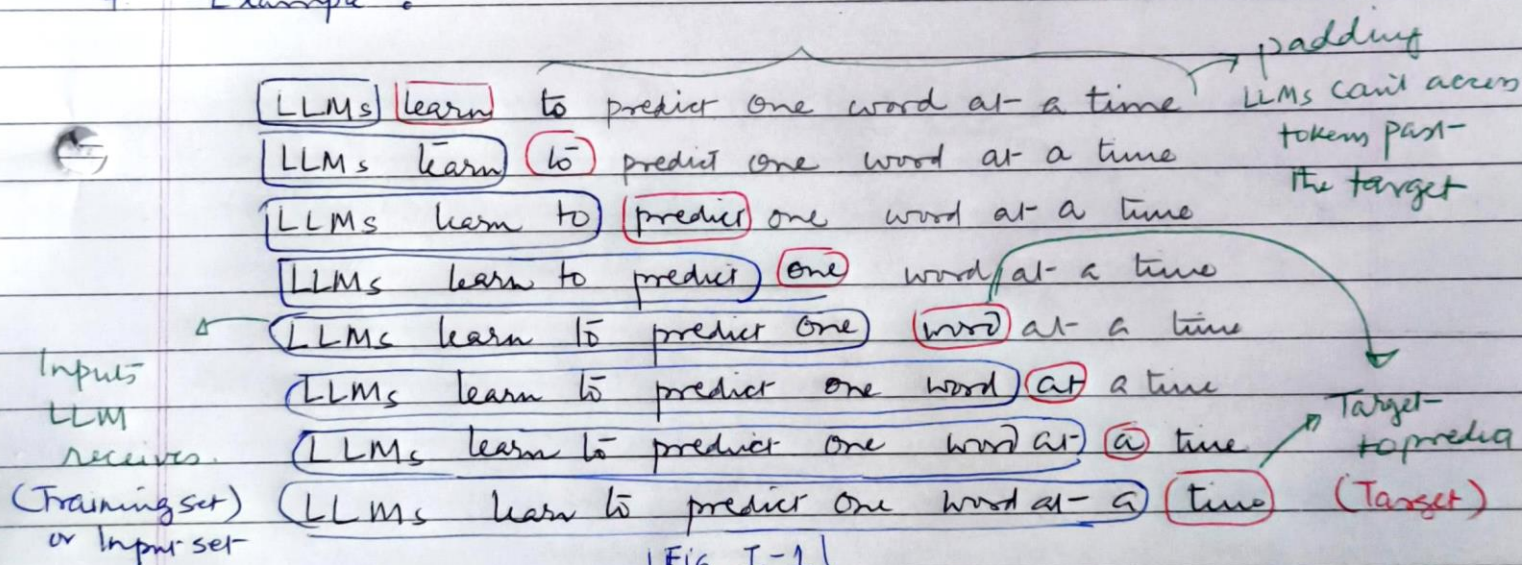 Example :
padding
LLMs learn to predict one word at a time
LLMs can't access
tokens past
the target
LLMs learn to predict one word at a time
LLMs learn to predict one word at a time
LLMs learn to predict one word at a time
LLMs learn to predict one word at a time
LLMs learn to predict one word at a time
LLMs learn to predict one word at a time
LLMs learn to predict one word at a time
Inputs
LLM
receives.
(Training set)
or Input set
Target
to predict
(Target)
Fig I-1